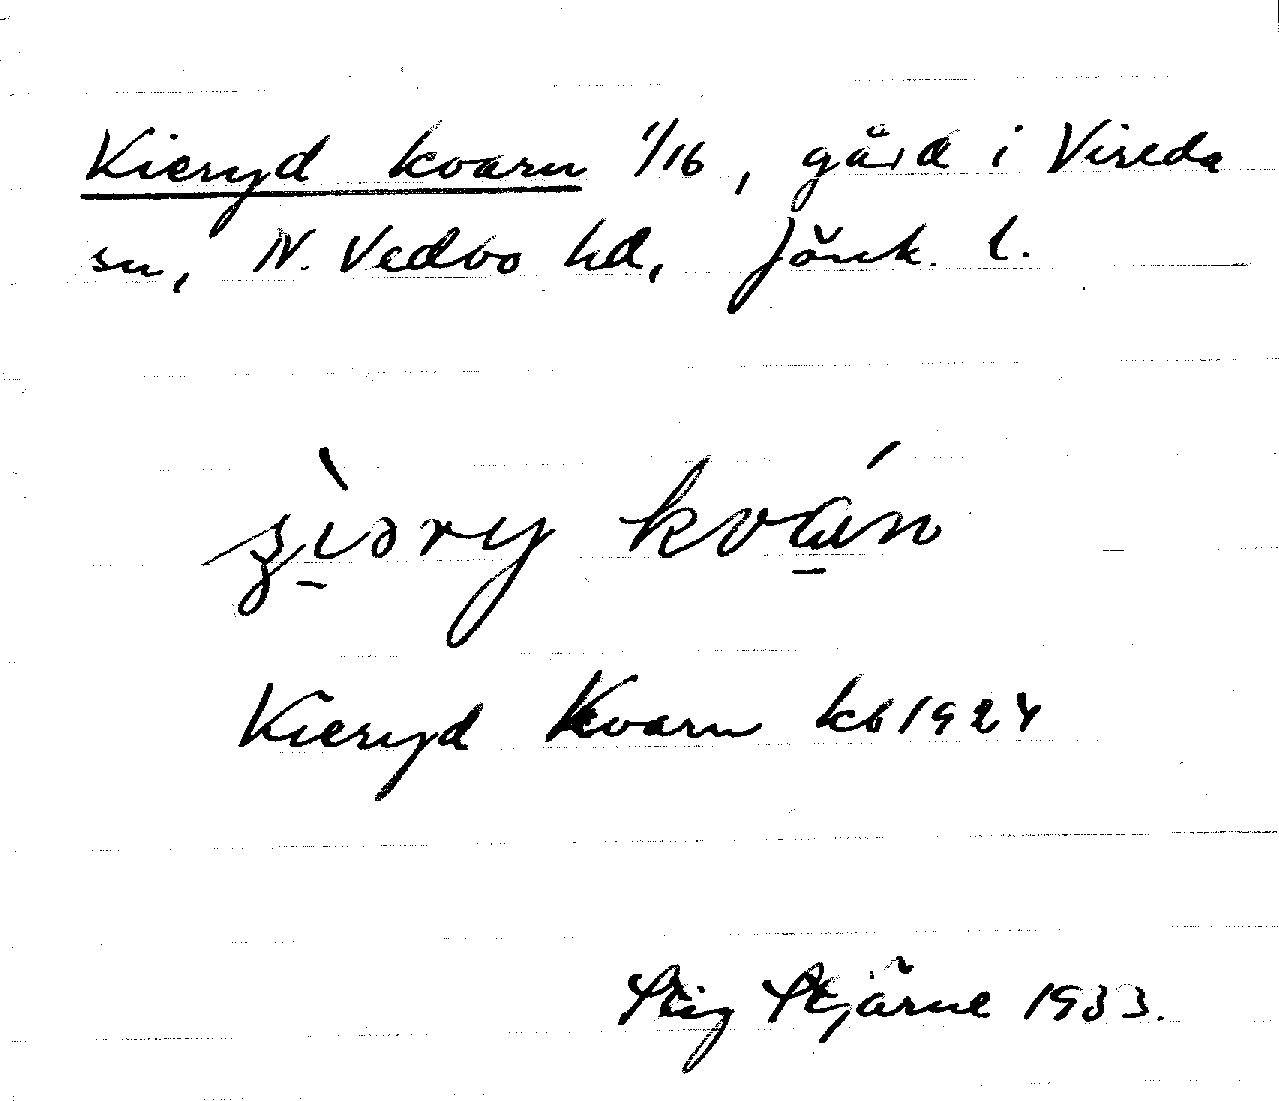 Kieryd kvarn 1/16, gård i Vireda
sn, N. Vedbo hd, Jönk. l.
kván
Kieryd Kvarn kb 1924
Stig Stjärne 1933.